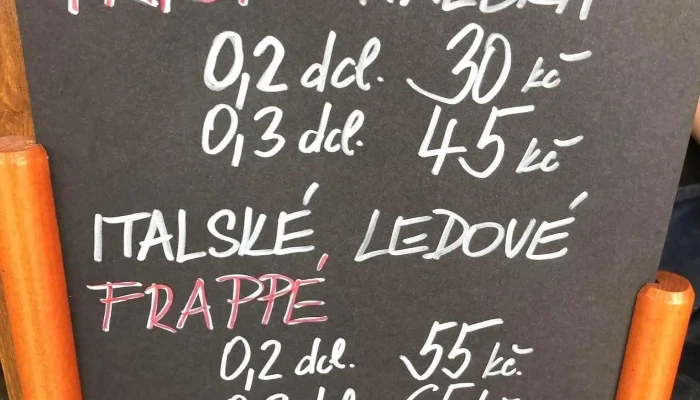 0,2 dcl. 30 kč
0,3 dcl. 45 kč
ITALSKÉ LEDOVÉ
FRAPPÉ
0,2 dcl. 55 kč.